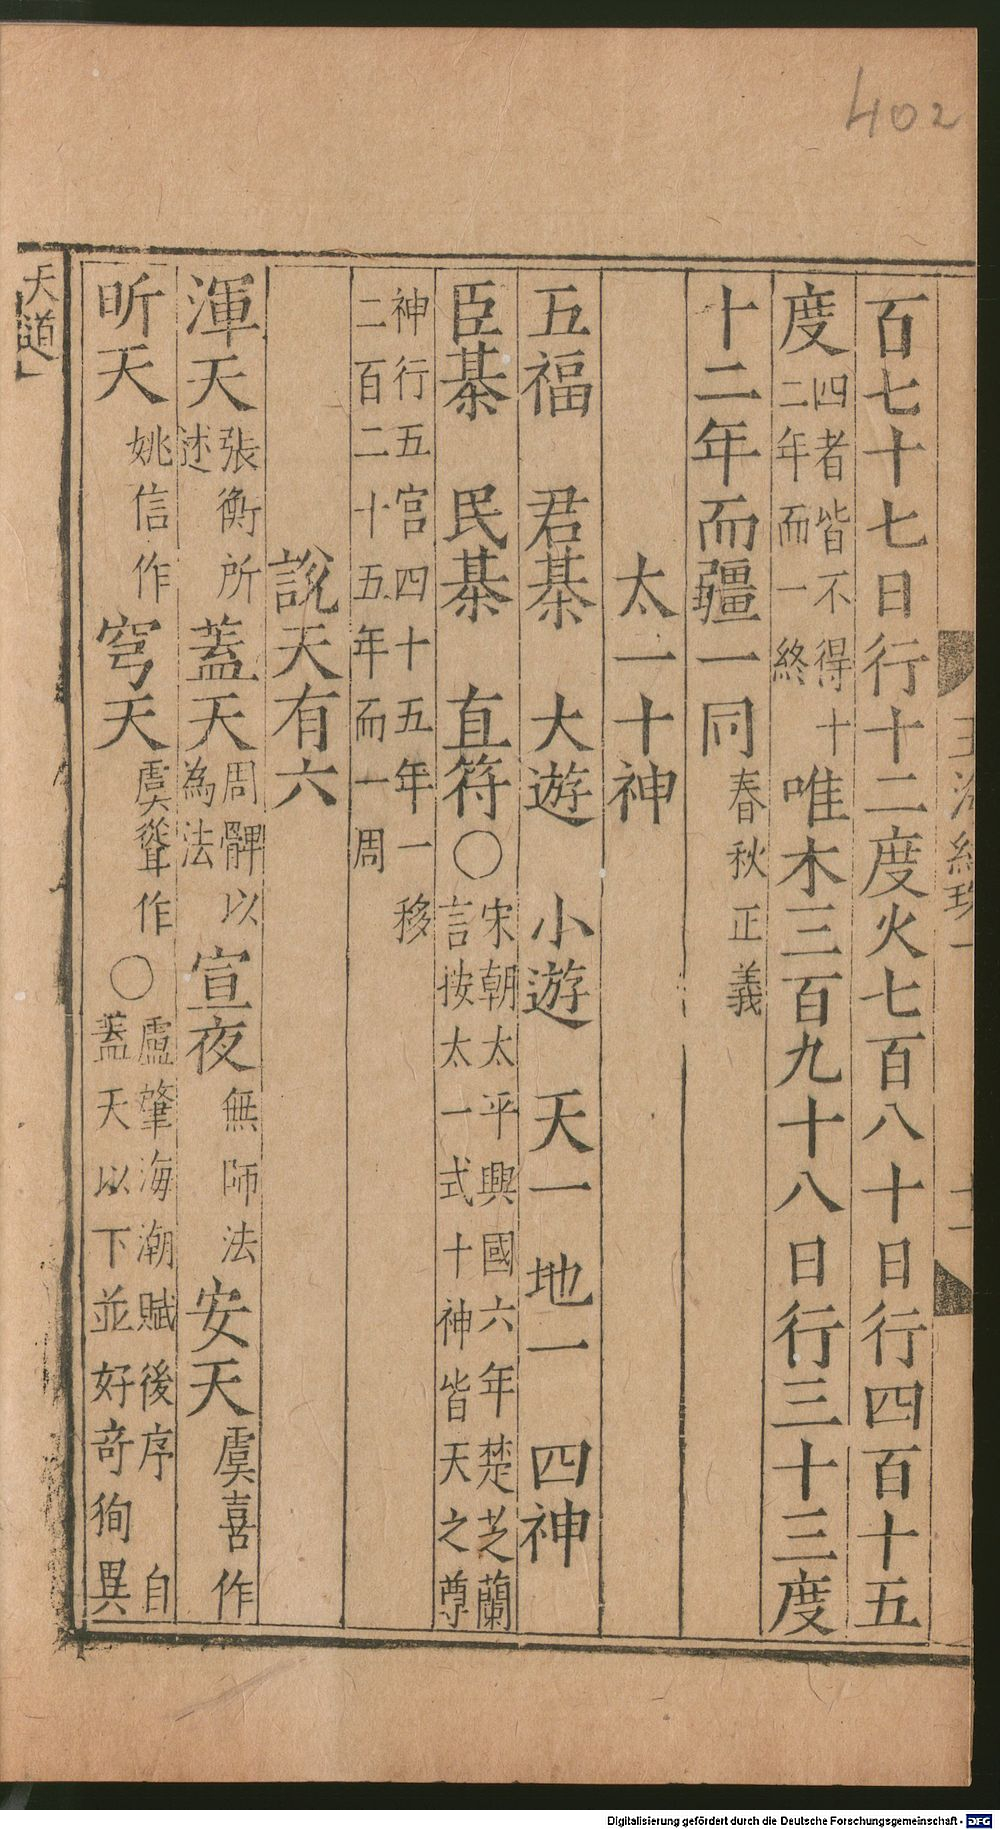 402
百七十七日行十二度火七百八十日行四百十五
度四者皆不得十二年而一終唯木三百九十八日行三十三度
十二年而疆一同春秋正義
太一十神
五福 君綦 大遊 小遊 天一 地一 四神
臣綦 民綦 直符○宋朝太平興國六年楚芝蘭言按太一式十神皆天之尊
神行五宮四十五年一移二百二十五年而一周
說天有六
渾天張衡所述蓋天周髀以為法宣夜無師法安天虞喜作
昕天姚信作穹天虞聳作○盧肇海潮賦後序自蓋天以下並好奇狥異
天道
十一
Digitalisierung gefördert durch die Deutsche Forschungsgemeinschaft - DFG